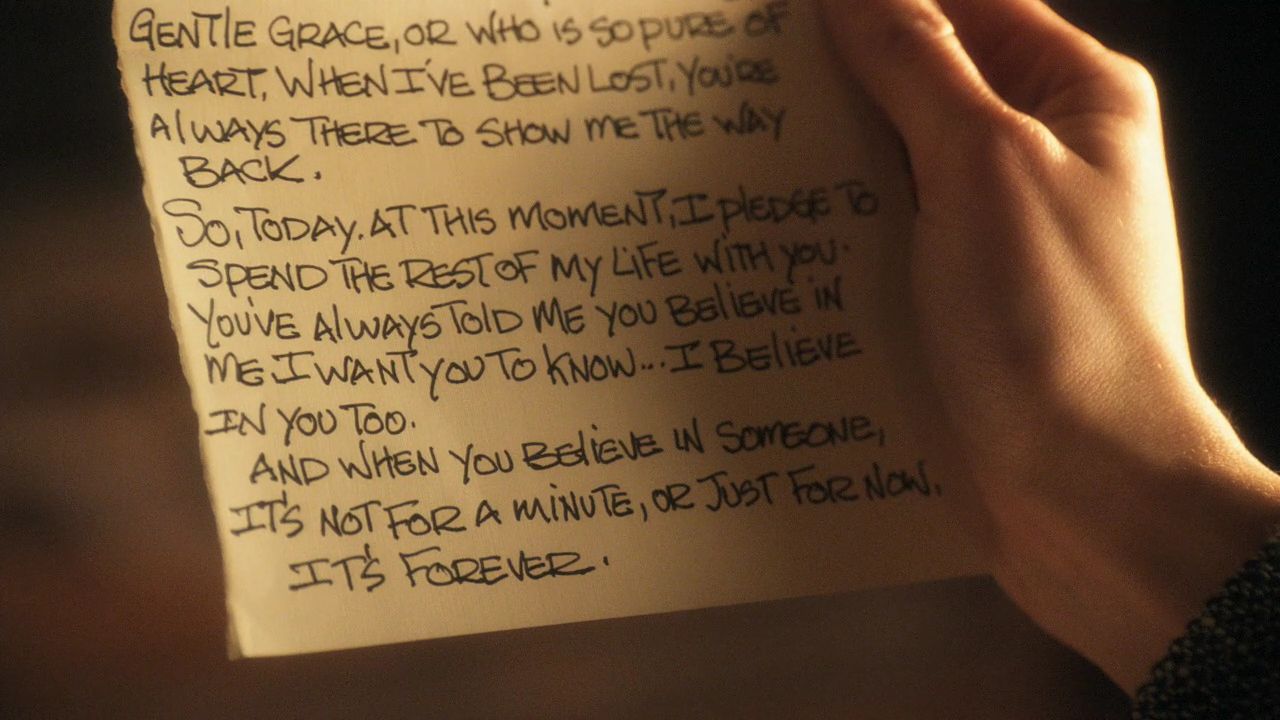 GENTLE GRACE, OR WHO IS SO PURE OF
HEART. WHEN I'VE BEEN LOST, YOU'RE
ALWAYS THERE TO SHOW ME THE WAY
BACK.
SO, TODAY. AT THIS MOMENT, I PLEDGE TO
SPEND THE REST OF MY LIFE WITH YOU.
YOU'VE ALWAYS TOLD ME YOU BELIEVE IN
ME. I WANT YOU TO KNOW... I BELIEVE
IN YOU TOO.
AND WHEN YOU BELIEVE IN SOMEONE,
IT'S NOT FOR A MINUTE, OR JUST FOR NOW.
IT'S FOREVER.